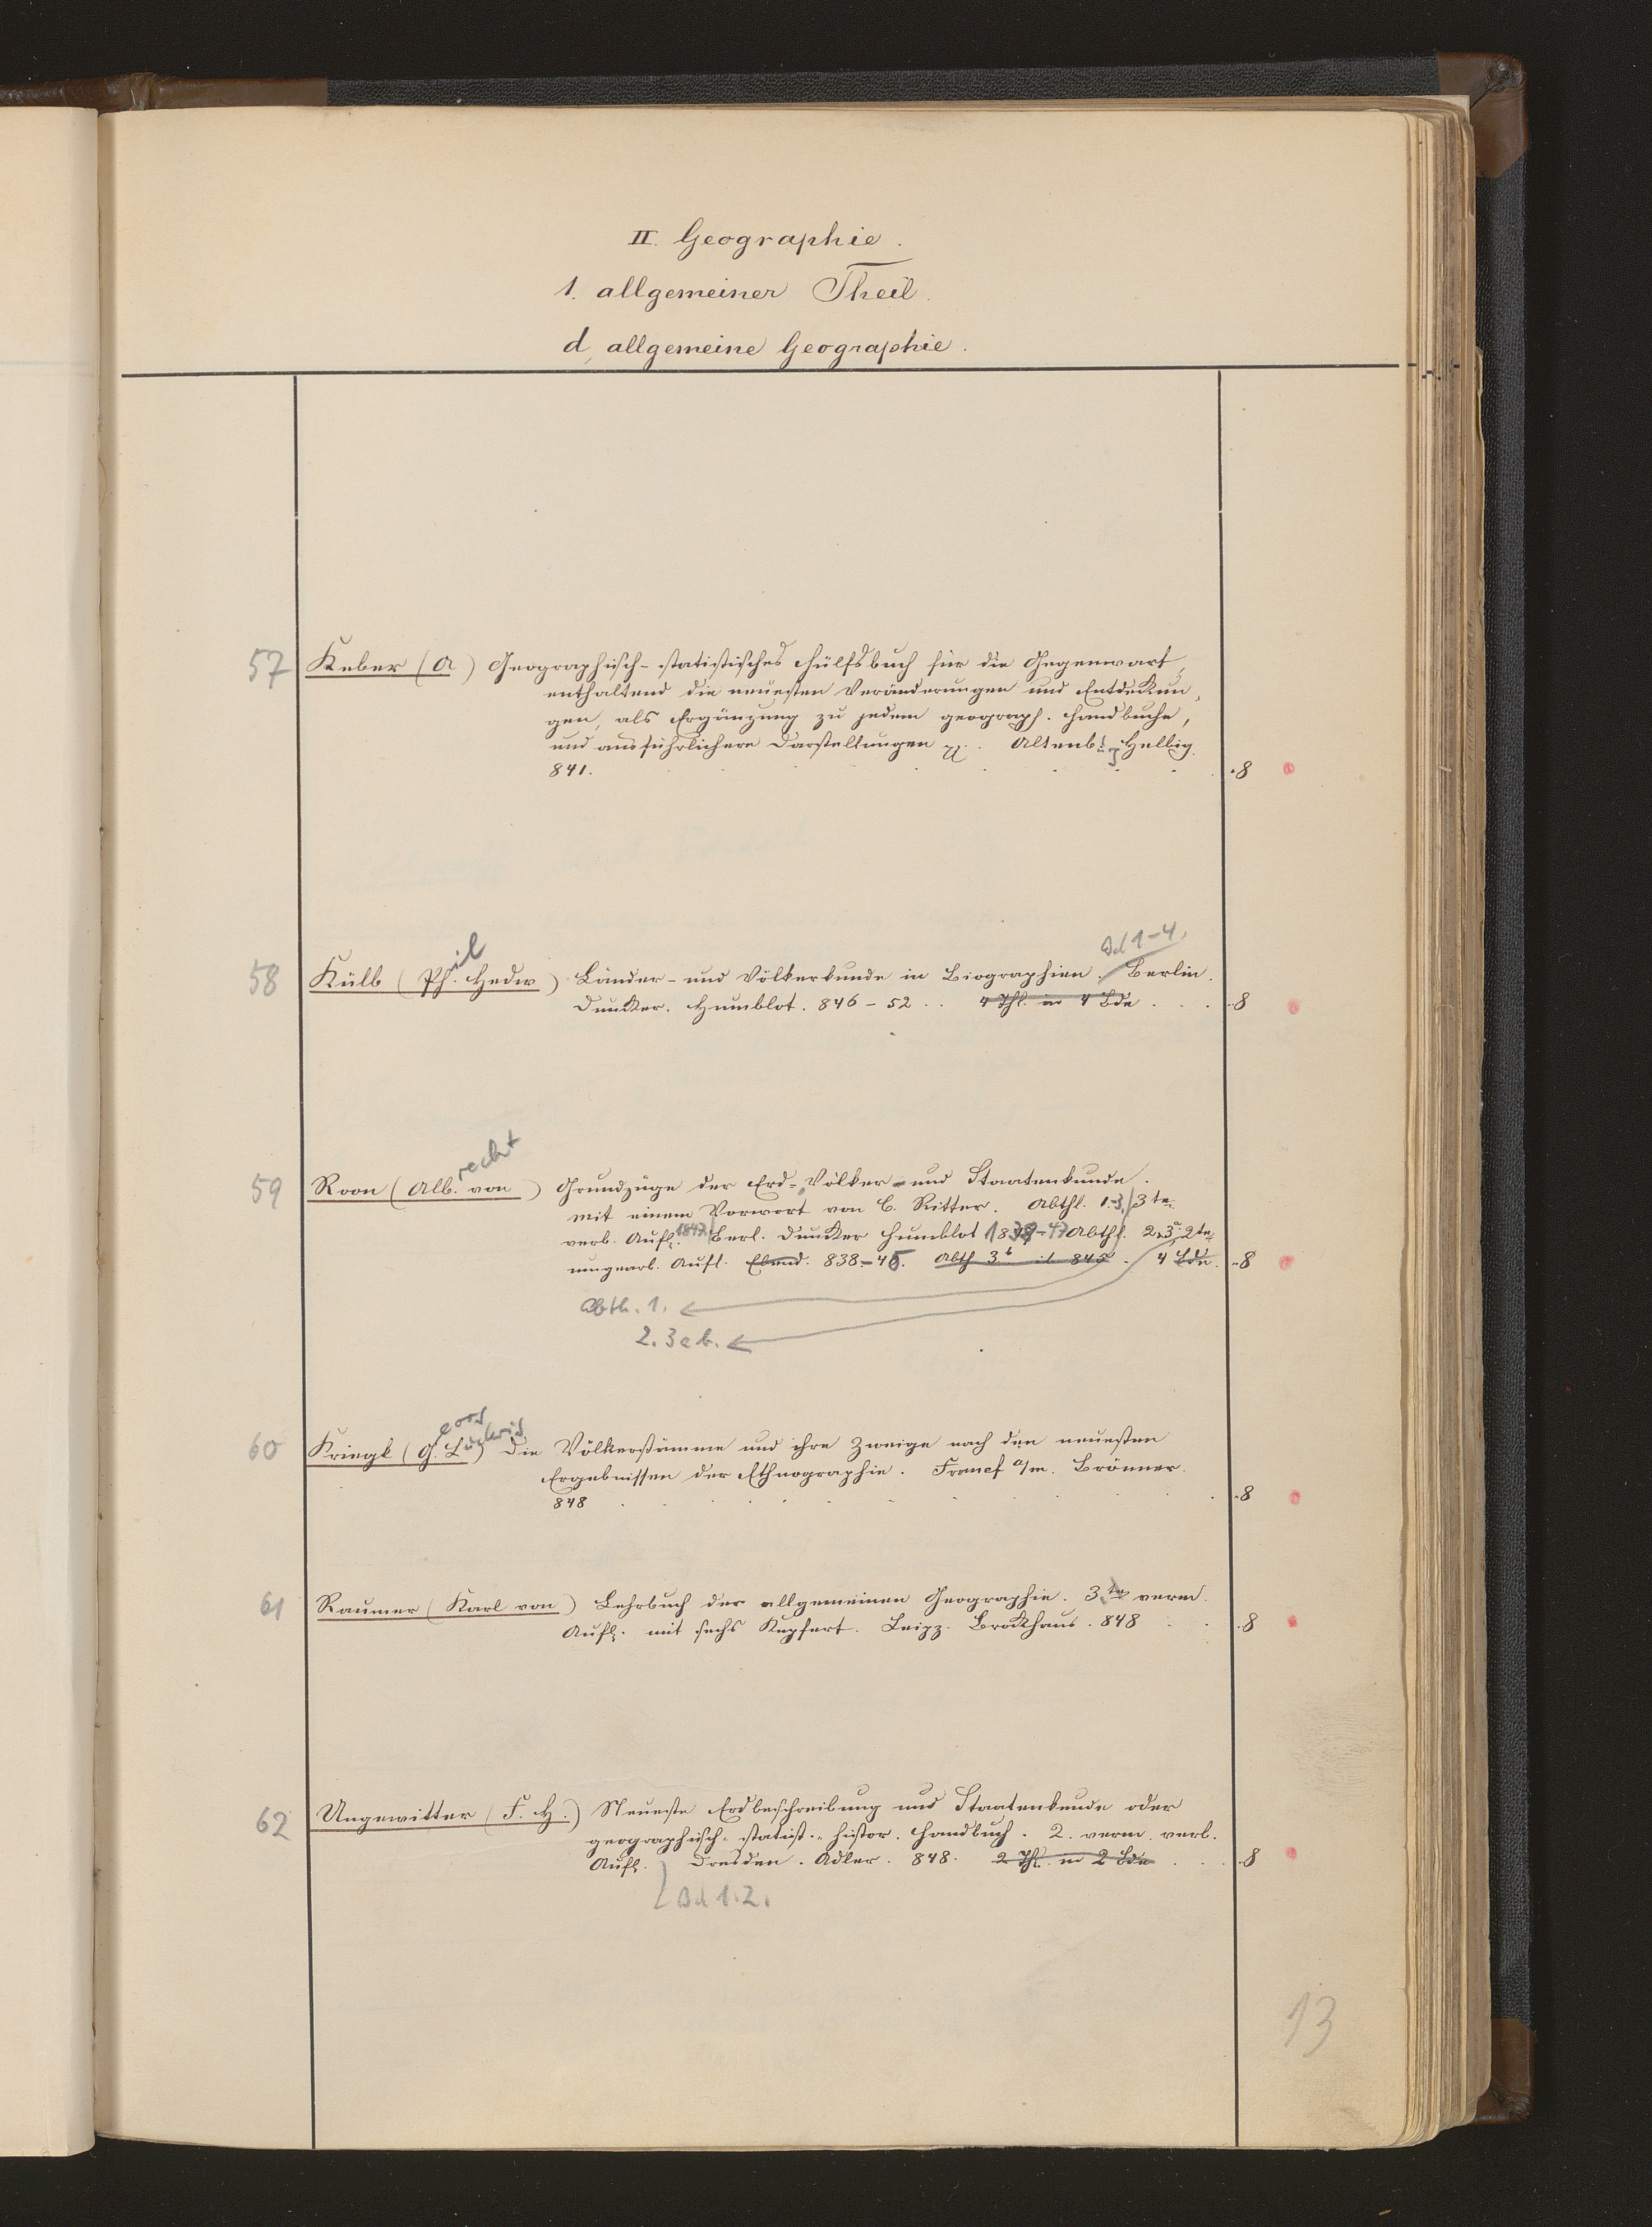 II. Geographie.
1. allgemeiner Theil.
d, allgemeine Geographie.
57 Keber (A) Geographisch-statistisches Hülfsbuch für die Gegenwart,
enthaltend die neuesten Veränderungen und Entdeckun-
gen, als Ergänzung zu jedem geograph. Handbuche,
und ausführlichere Darstellungen Altenb. Helbig.
841. 8
Bd 1-4.
58 Külb (Phil. Hedw) Länder- und Völkerkunde in Biographien. Berlin.
Duncker. Humblot. 846-52.. 4 Thl. in 4 Bde 8
59 Roon (Albrecht von) Grundzüge der Erd-, Völker- und Staatenkunde.
mit einem Vorwort von C. Ritter. Abthl. 1.-3. 3te
verb. Aufl. 1847. Berl. Duncker Humblot 1838-47 Abthl. 2.3a. 2te
umgearb. Aufl. Ebend. 838-45. Abth 3b 845. 4 Bde. 8
Abth. 1.
2. 3 a b.
60 Kriegk (Georg Ludwig) Die Völkerstämme und ihre Zweige nach den neuesten
Ergebnissen der Ethnographie. Francf a/m. Brönner.
848 8
61 Raumer (Karl von) Lehrbuch der allgemeinen Geographie. 3.te verm.
Aufl. mit sechs Kupfert. Leipz. Brockhaus. 848 8
62 Ungewitter (F. H.) Neueste Erdbeschreibung und Staatenkunde oder
geographisch-statist.-histor. Handbuch. 2. verm. verb.
Aufl. Dresden. Adler. 848. 2 Thl. in 2 Bde 8
Bd 1.2.
13